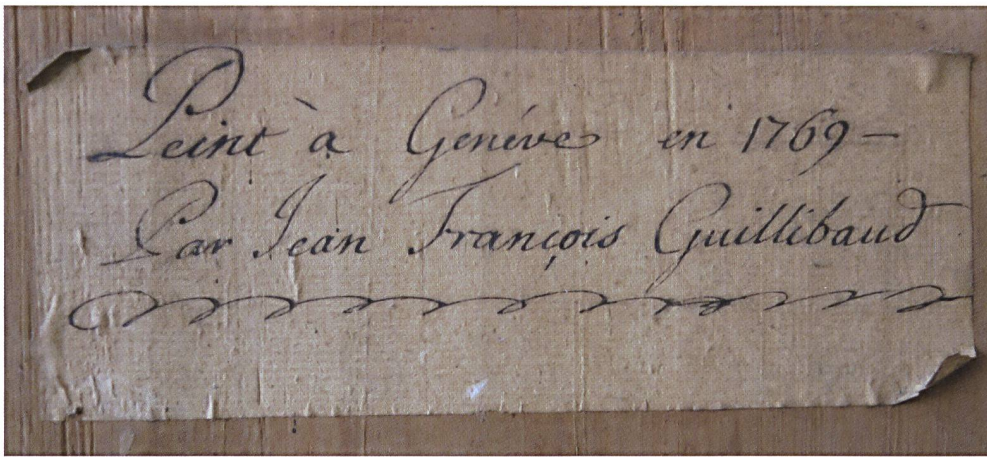 Peint à Genéve en 1769 –
Par Jean François Guillibaud